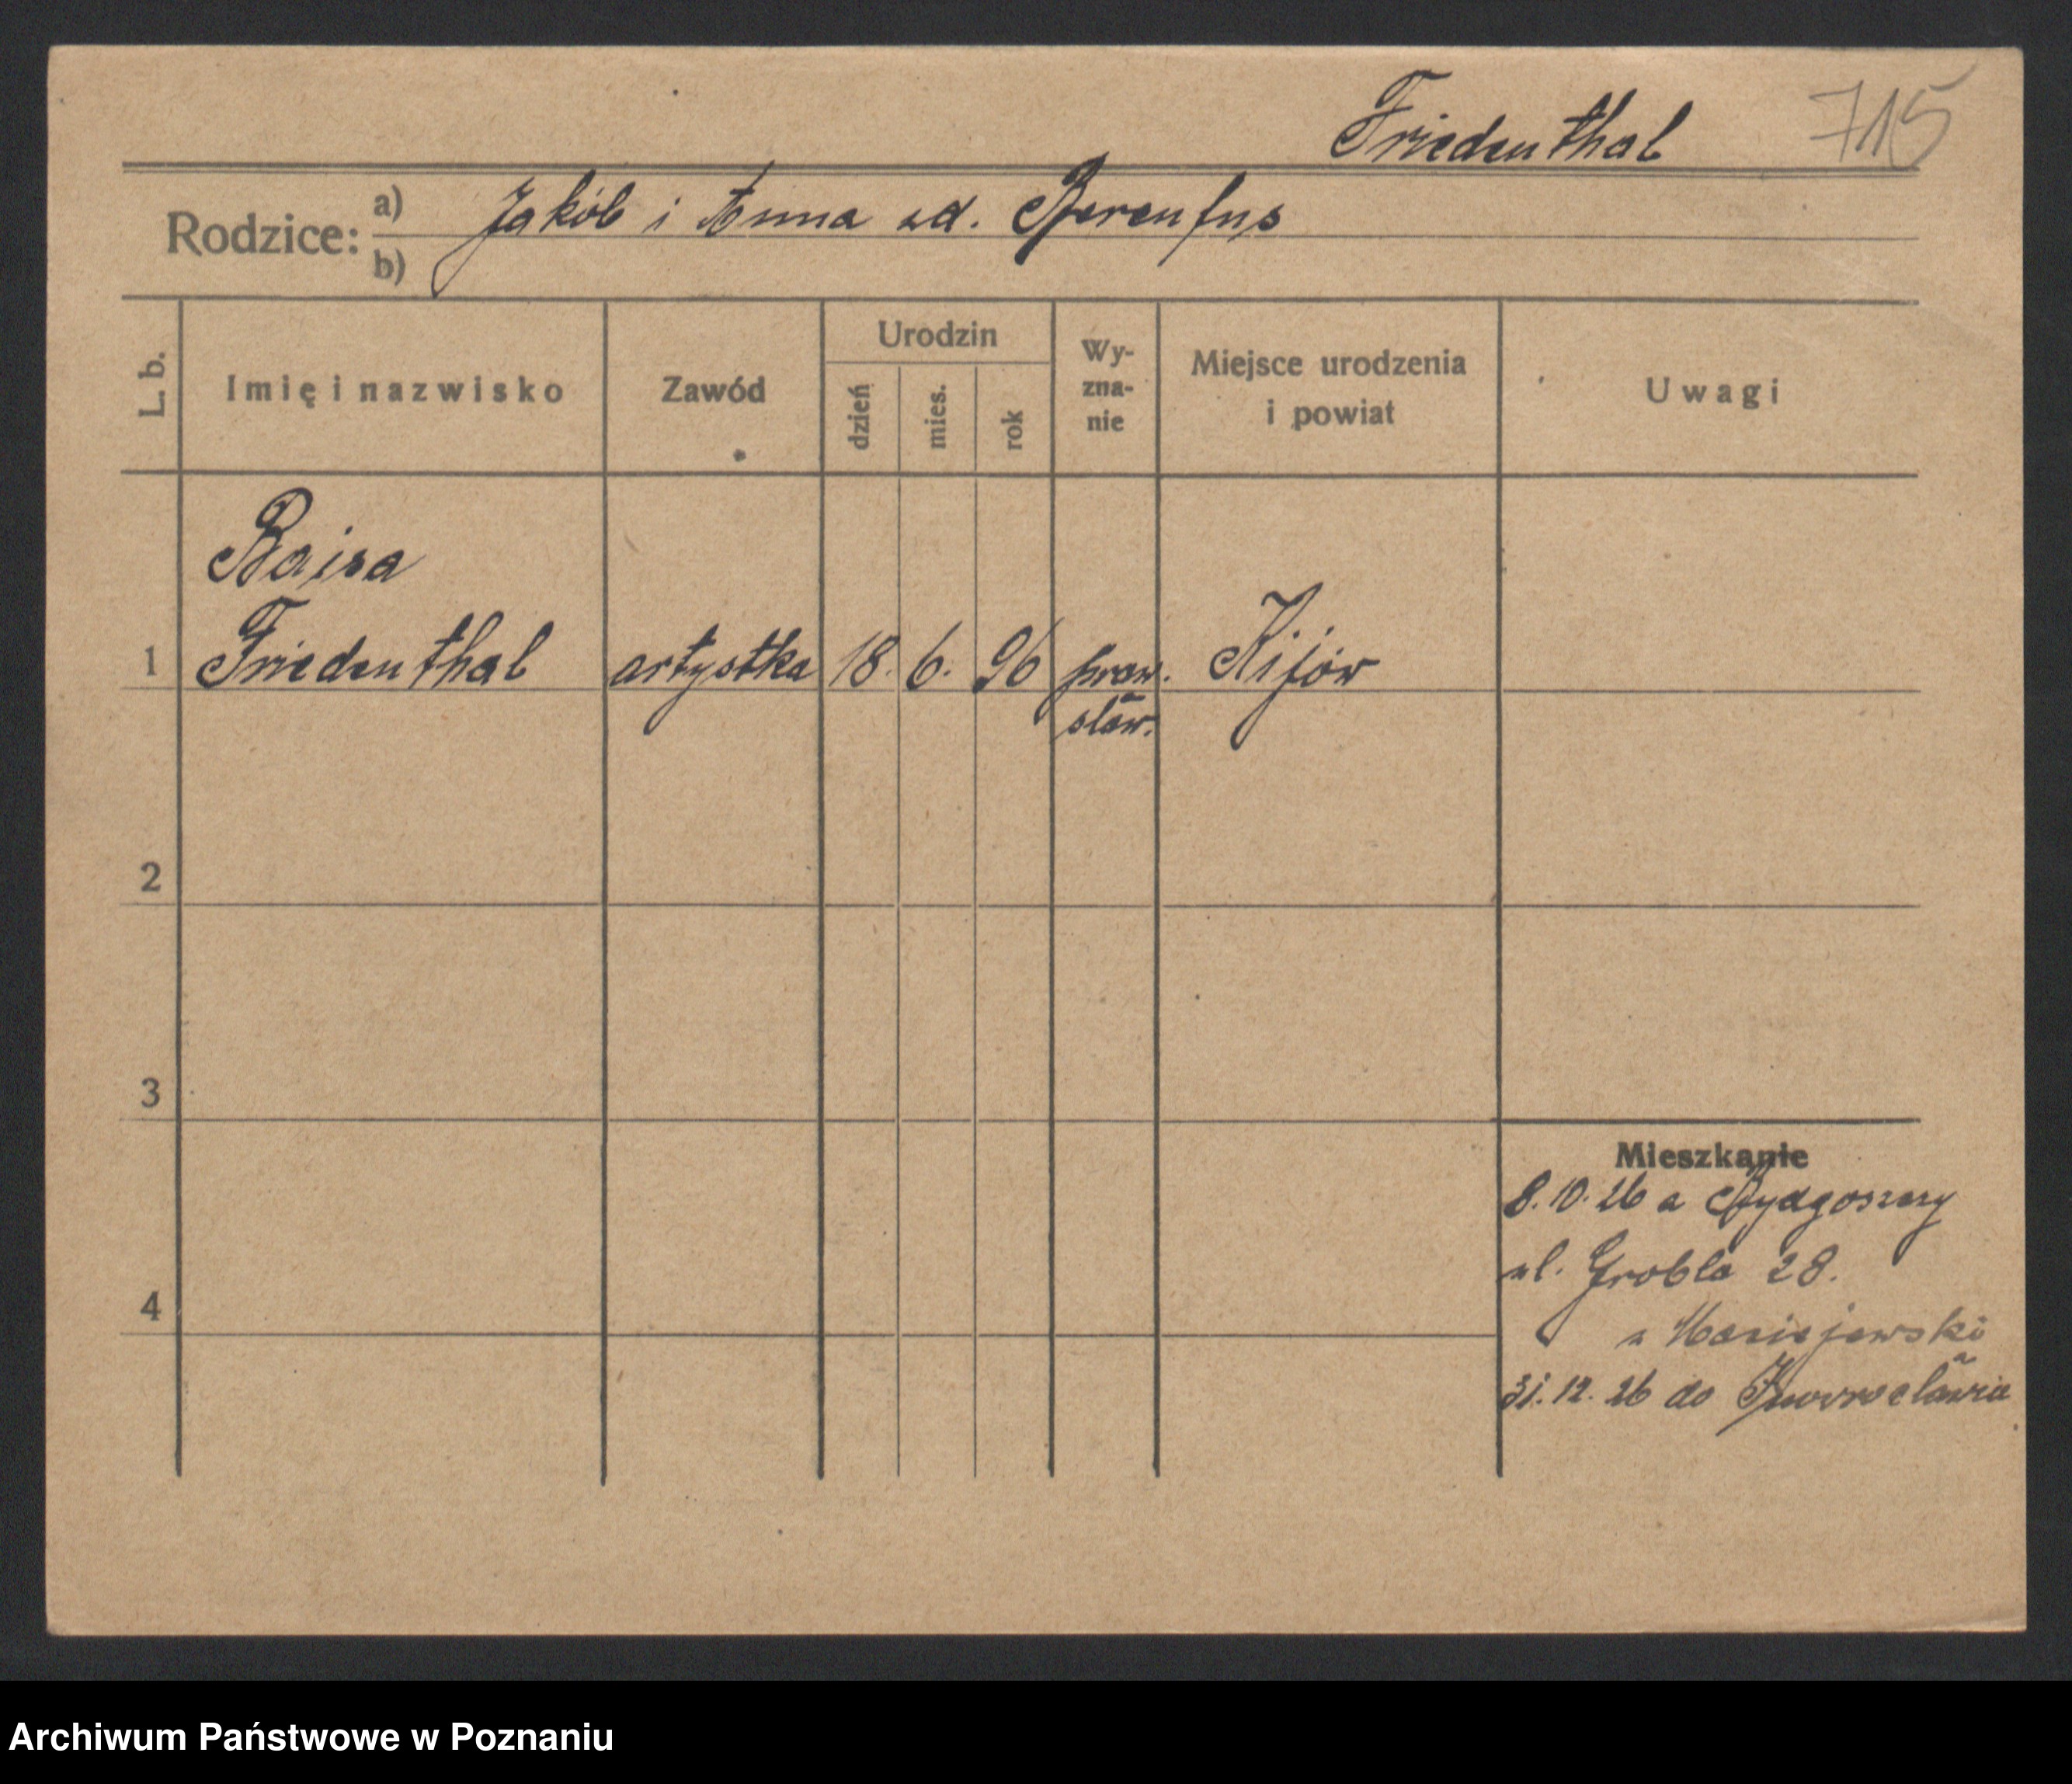 Friedenthal 715
Rodzice: a) Jakób i Anna zd. Berenfus
b)
L. b. Imię i nazwisko Zawód Urodzin dzień mies. rok Wy-zna-nie Miejsce urodzenia i powiat Uwagi
Bajsa
1 Friedenthal artystka 18. 6. 96 praw. Kijów
sław.
2
3
Mieszkanie
8.10.26 z Bydgoszczy
ul. Grobla 28.
4
u Maciejewski
31.12.26 do Inowrocławia
Archiwum Państwowe w Poznaniu